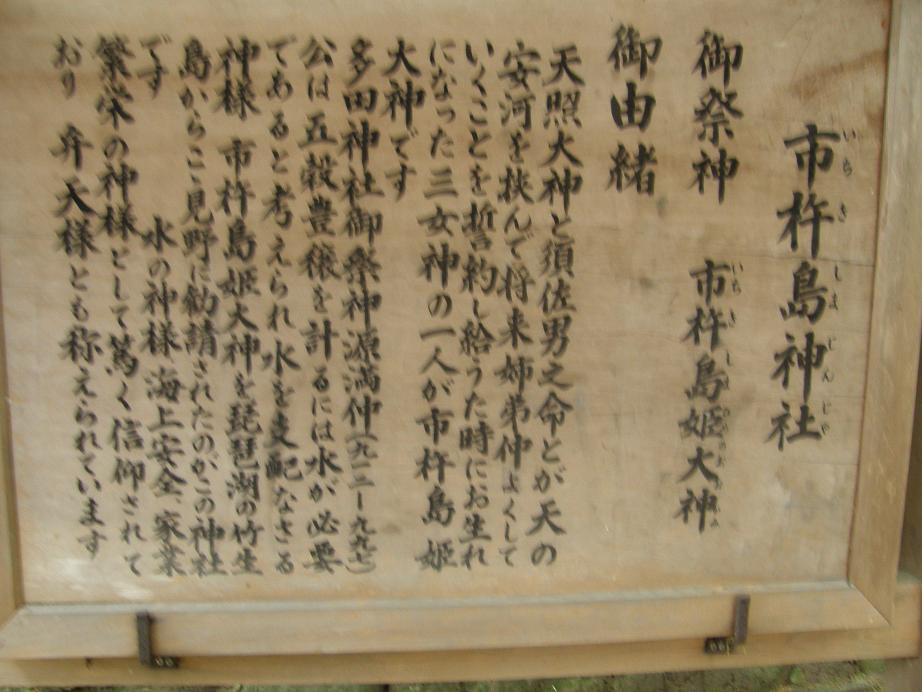 市杵島神社
いちきしまじんじゃ
御祭神　市杵島姫大神
いちきしま
御由緒
天照大神と須佐男之命とが天の
安河を挟んで将来姉弟仲よくして
いくことを誓約し給うた時にお生れ
になった三女神の一人が市杵島姫
大神です
多田神社御祭神源満仲(九一二ー九九七)
公は五穀豊穣を計るには水が必要
であると考えられ水を支配なさる
神様　市杵島姫大神を琵琶湖の竹生
島からこゝ見野に勧請されたのがこの神社
です　水の神様　海上安全　家業
繁栄の神様として篤く信仰されて
おり　弁天様とも称えられています